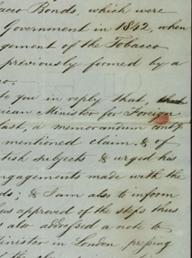 acco Bonds, which were
Government in 1842, when
gement of the Tobacco
previously formed by a
to you in reply that,
rican Minister for Foreign
last, a memorandum only
mentioned claim & of
tish subjects & urged his
ngagements made with the
ds; & I am also to inform
has approved of the steps thus
s also addressed a note to
inister in London pressing